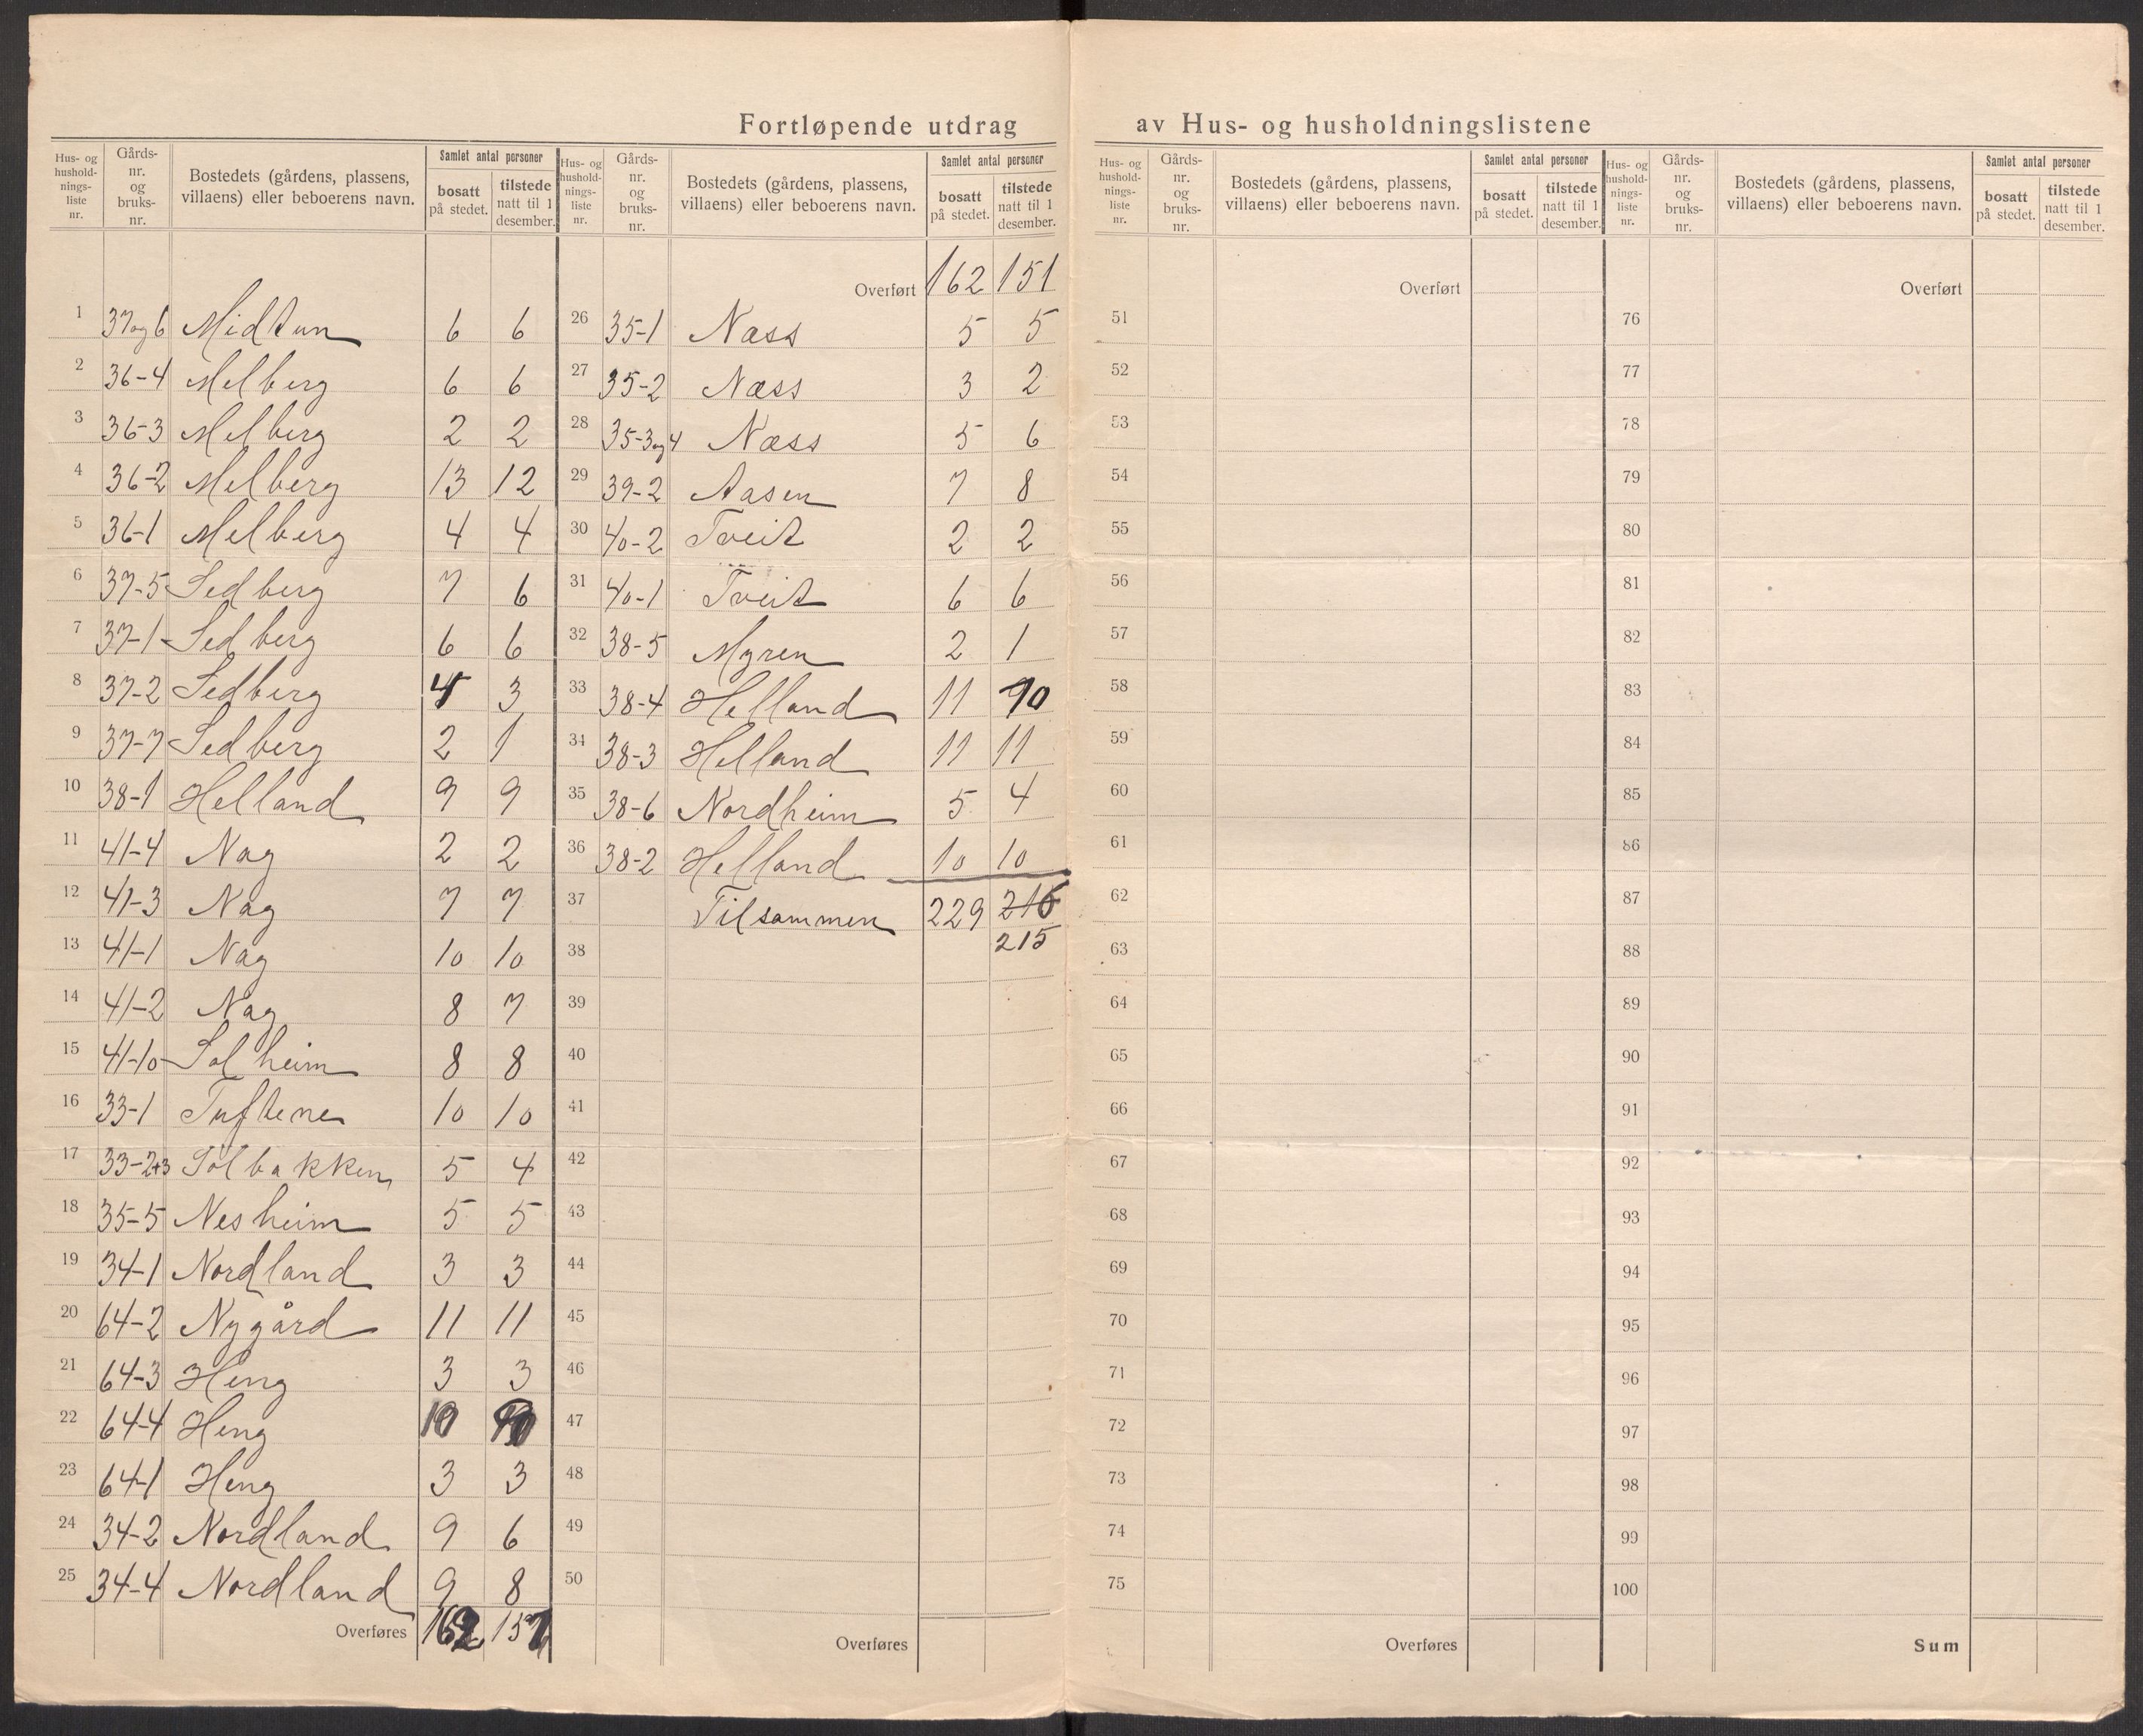 Fortløpende utdrag av Hus- og husholdningslistene
Hus- og hushold-nings-liste nr. Gårds-nr. og bruks-nr. Bostedets (gårdens, plassens, villaens) eller beboerens navn. Samlet antal personer bosatt på stedet. tilstede natt til 1 desember.
1 37 og 6 Midtun 6 6
2 36-4 Melberg 6 6
3 36-3 Melberg 2 2
4 36-2 Melberg 13 12
5 36-1 Melberg 4 4
6 37-5 Sedberg 7 6
7 37-1 Sedberg 6 6
8 37-2 Sedberg 4 3
9 37-7 Sedberg 2 1
10 38-1 Helland 9 9
11 41-4 Nag 2 2
12 41-3 Nag 7 7
13 41-1 Nag 10 10
14 41-2 Nag 8 7
15 41-10 Solheim 8 8
16 33-1 Tuftene 10 10
17 33-2+3 Solbakken 5 4
18 35-5 Nesheim 5 5
19 34-1 Nordland 3 3
20 64-2 Nygård 11 11
21 64-3 Heng 3 3
22 64-4 Heng 10
23 64-1 Heng 3 3
24 34-2 Nordland 9 6
25 34-4 Nordland 9 8
Overføres 162 151
Hus- og hushold-nings-liste nr. Gårds-nr. og bruks-nr. Bostedets (gårdens, plassens, villaens) eller beboerens navn. Samlet antal personer bosatt på stedet. tilstede natt til 1 desember.
Overført 162 151
26 35-1 Næss 5 5
27 35-2 Næss 3 2
28 35-3 og 4 Næss 5 6
29 39-2 Aasen 7 8
30 40-2 Tveit 2 2
31 40-1 Tveit 6 6
32 38-5 Myren 2 1
33 38-4 Helland 11 10
34 38-3 Helland 11 11
35 38-6 Nordheim 5 4
36 38-2 Helland 10 10
37 Tilsammen 229 216
38 215
39
40
41
42
43
44
45
46
47
48
49
50
Overføres
Hus- og hushold-nings-liste nr. Gårds-nr. og bruks-nr. Bostedets (gårdens, plassens, villaens) eller beboerens navn. Samlet antal personer bosatt på stedet. tilstede natt til 1 desember.
Overført
51
52
53
54
55
56
57
58
59
60
61
62
63
64
65
66
67
68
69
70
71
72
73
74
75
Overføres
Hus- og hushold-nings-liste nr. Gårds-nr. og bruks-nr. Bostedets (gårdens, plassens, villaens) eller beboerens navn. Samlet antal personer bosatt på stedet. tilstede natt til 1 desember.
Overført
76
77
78
79
80
81
82
83
84
85
86
87
88
89
90
91
92
93
94
95
96
97
98
99
100
Sum